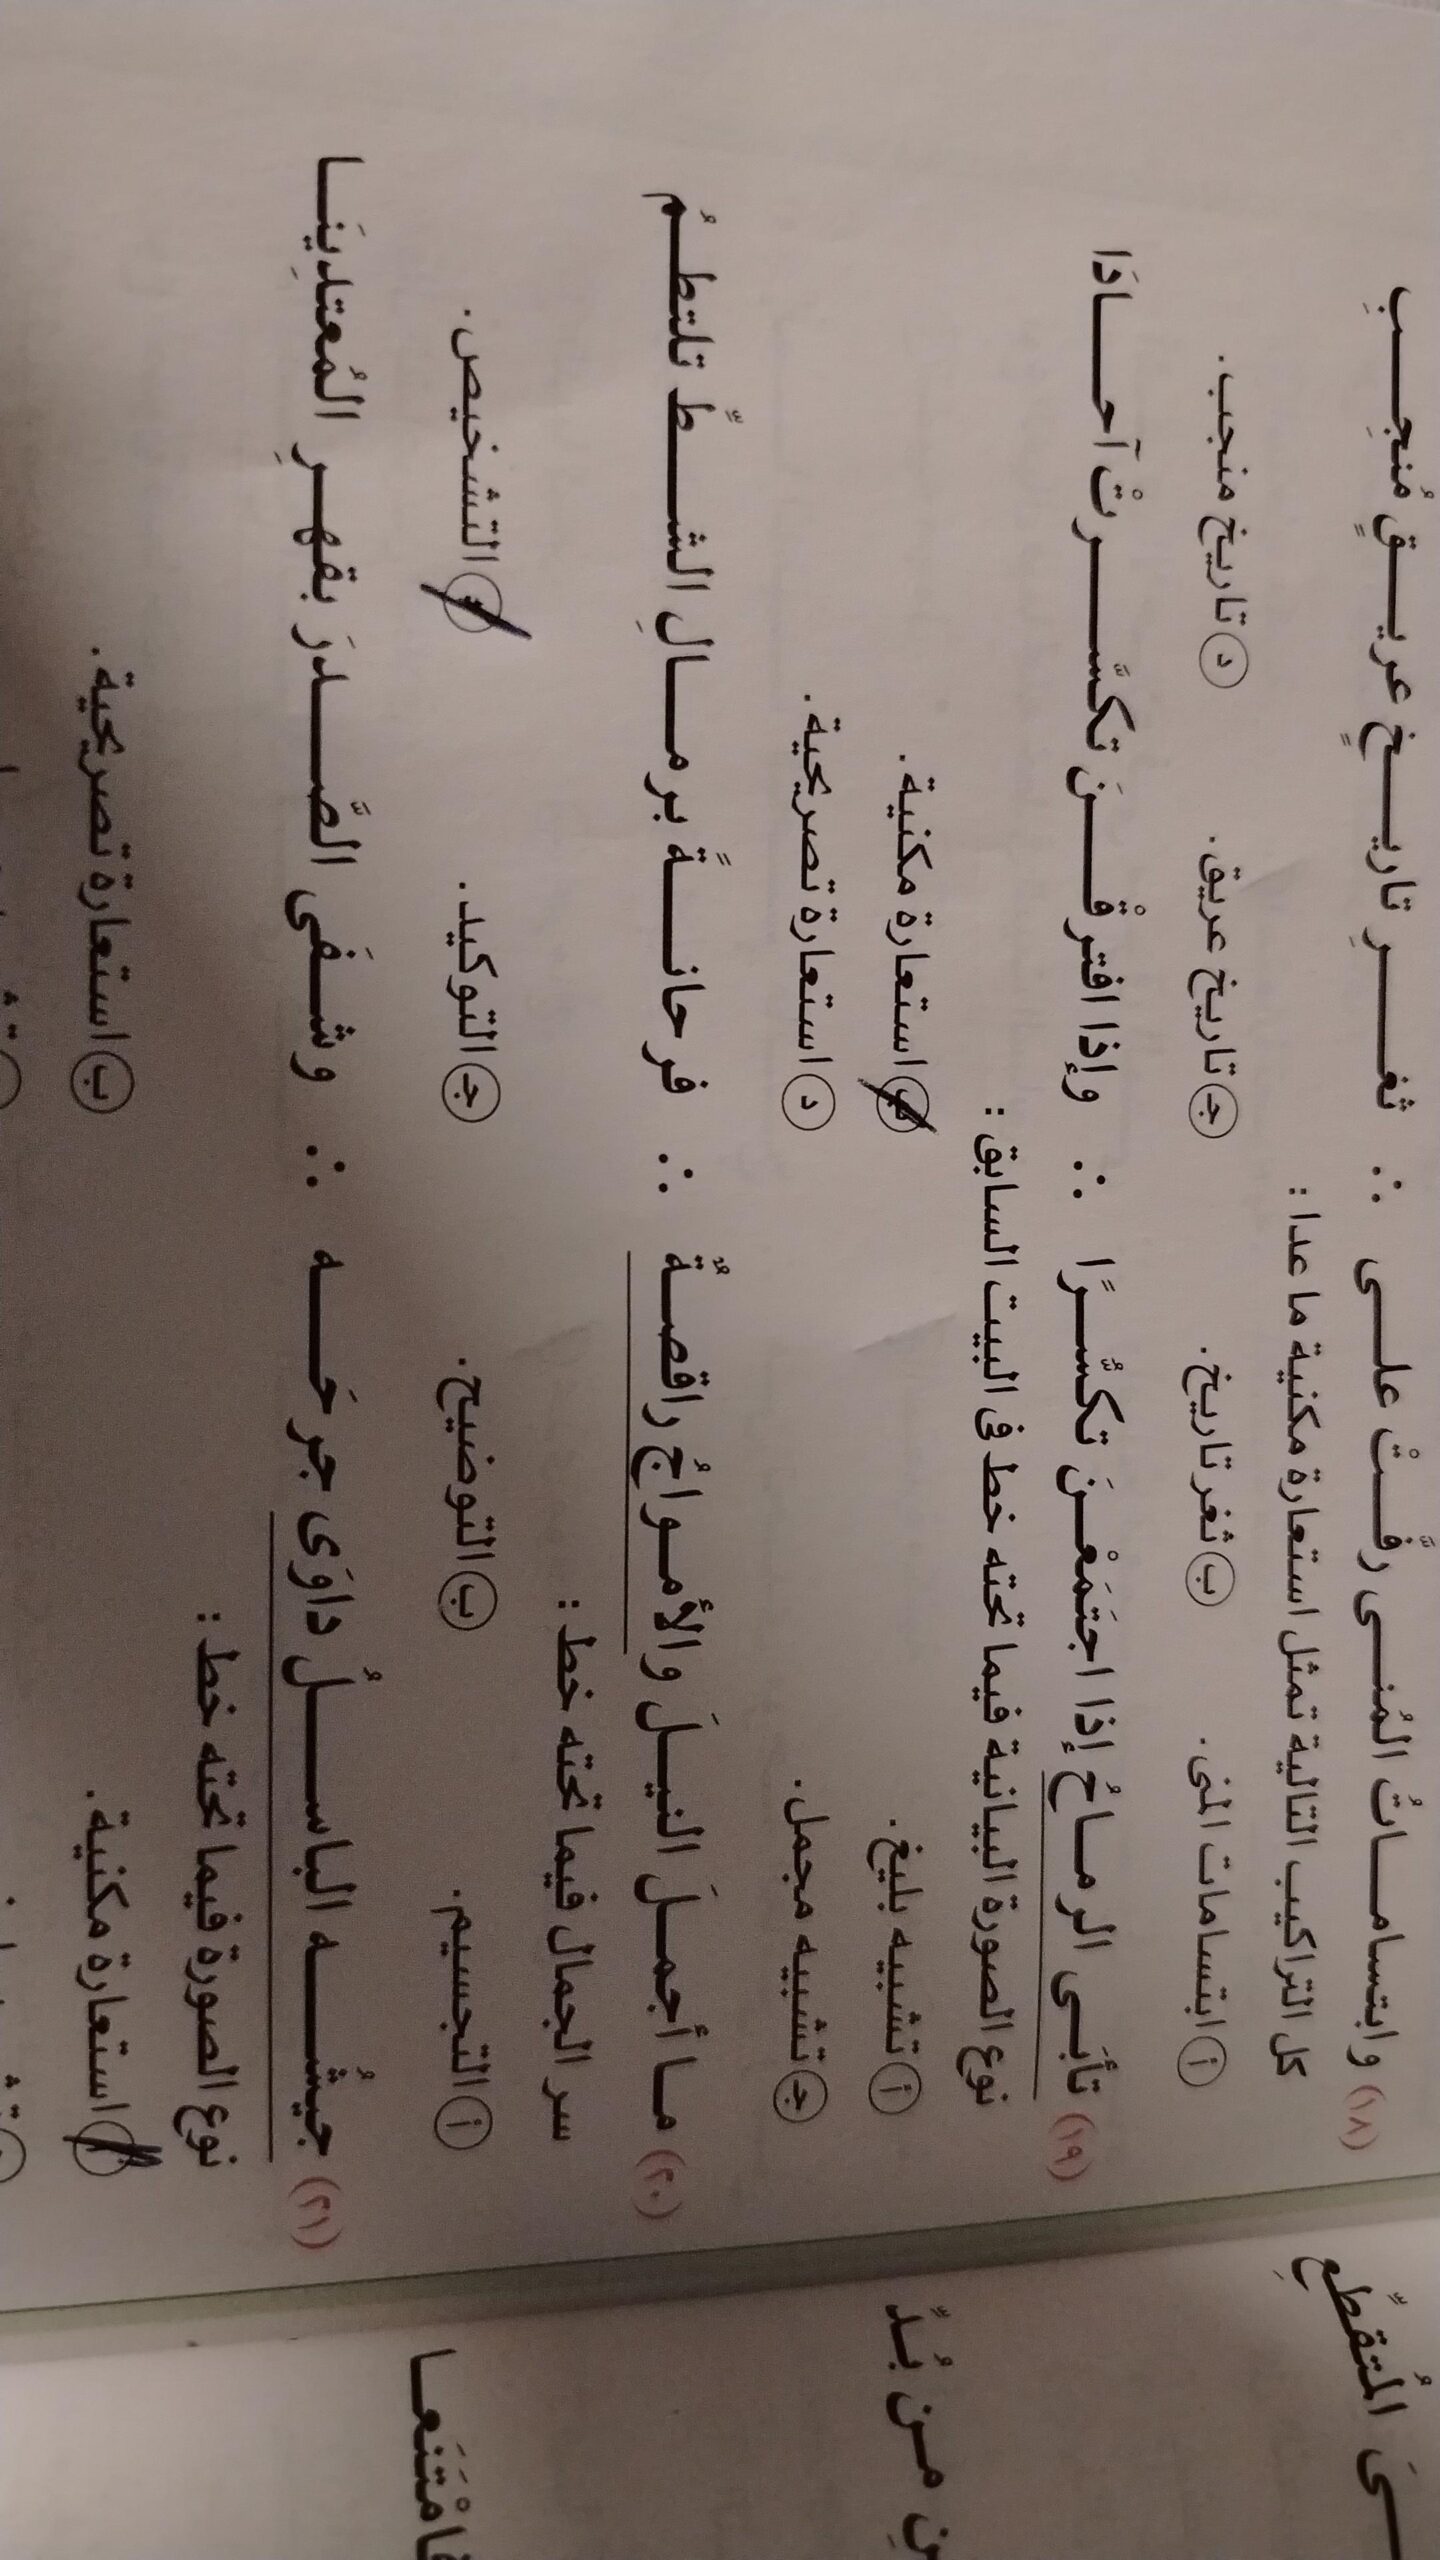 (١٨) وابتسامــاتُ المُنــى رفَّــتْ علــى ∴ ثغــرِ تاريــخٍ عريــقٍ مُنجِــبِ
كل التراكيب التالية تمثل استعارة مكنية ما عدا :
أ ابتسامات المنى. ب ثغر تاريخ. ج تاريخ عريق. د تاريخ منجب.
(١٩) تأبَــى الرمــاحُ إذا اجتَمَعْــنَ تكسُّــرًا ∴ وإذا افترقْــنَ تكسَّــرتْ آحــادَا
نوع الصورة البيانية فيما تحته خط فى البيت السابق :
أ تشبيه بليغ. ب استعارة مكنية.
ج تشبيه مجمل. د استعارة تصريحية.
(٢٠) مــا أجمــلَ النيــلَ والأمــواجُ راقصــةٌ ∴ فرحانــةً برمــالِ الشــطِّ تلتطــمُ
سر الجمال فيما تحته خط :
أ التجسيم. ب التوضيح. ج التوكيد. د التشخيص.
(٢١) جيشُــه الباســلُ داوَى جرحَــه ∴ وشــفَى الصَّــدرَ بقهــرِ المُعتدِيَنــا
نوع الصورة فيما تحته خط :
أ استعارة مكنية. ب استعارة تصريحية.
المُتقطِّعِ
من بُدِّ
فامْتَنَعــا